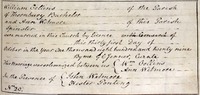 William Collins of the Parish
of Thornbury Bachelor
and Ann Wetmore of this Parish
Spinster
were married in this Church by Licence with Consent of
this thirty first Day of
October in the year One thousand eight hundred and twenty nine
By me
This Marriage was solemnized between us Wm Collins
Ann Wetmore
In the Presence of John Wetmore
Hester Darling
No 30.